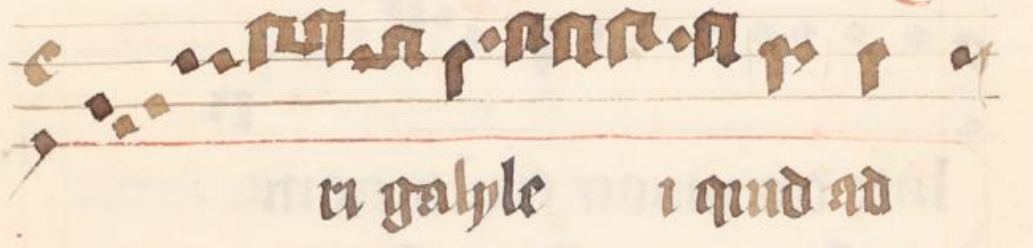 ri galyle i quid ad